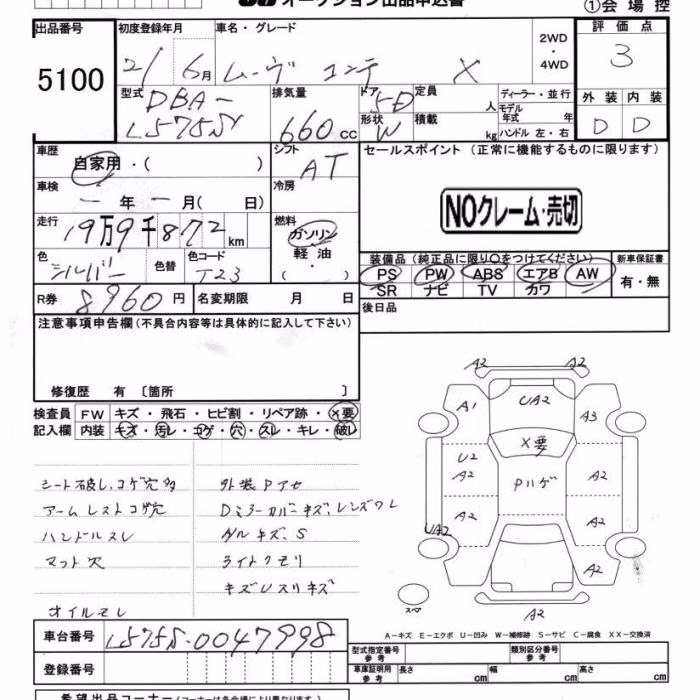 オークション出品申込書
①会場控
出品番号 初度登録年月 車名・グレード 評価点
5100
21/6月 ムーヴ コンテ X
2WD・4WD
3
型式 排気量 ドア 定員 ディーラー・並行 外装 内装
DBA-L575S 660cc 5D 人 モデル年式 年 D D
形状 W 積載 kg ハンドル 左・右
車歴 シフト セールスポイント (正常に機能するものに限ります)
自家用・( ) AT
車検 冷房
一年一月( 日)
NOクレーム・売切
走行 燃料
19万9千872km ガソリン・軽油・( )
色 シルバー 色替 色コード T23
装備品(純正品に限り○をつけてください) 新車保証書
PS PW ABS エアB AW 有・無
SR ナビ TV カワ
R券 8960円 名変期限 月 日 後日品
注意事項申告欄(不具合内容等は具体的に記入して下さい)
修復歴 有 〔箇所 〕
検査員 FW キズ・飛石・ヒビ割・リペア跡・X要
記入欄 内装 キズ・汚レ・コゲ・穴・スレ・キレ・破レ
シート破レ、コゲ穴多 外装Pアセ
アームレストコゲ穴 Dミラーカバーキズ、レンズワレ
ハンドルスレ AWキズ、S
マット穴 ライトクモリ
キズUスリキズ
オイルモレ
A2 A2
A1 UA2 A3
X要
U2
A2 Pハゲ A2
A2 A2
UA2
A2
スペア
A2
A-キズ E-エクボ U-凹み W-補修跡 S-サビ C-腐食 XX-交換済
車台番号 L575S-0047998
型式指定番号 参考 類別区分番号 参考
登録番号
車庫証明用 参考 長さ cm 幅 cm 高さ cm
希望出品コーナー(コーナーは各会場により異なります。)